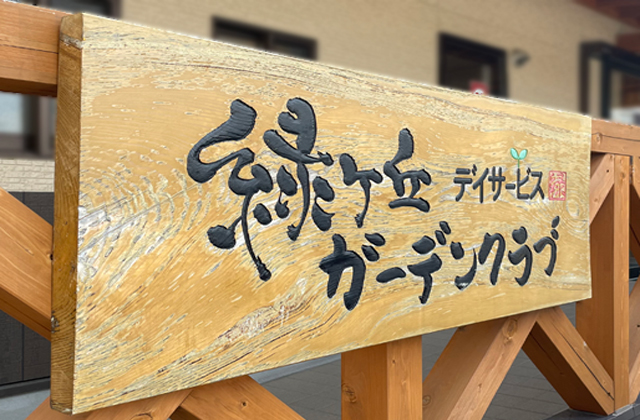 緑ヶ丘
デイサービス
ガーデンクラブ